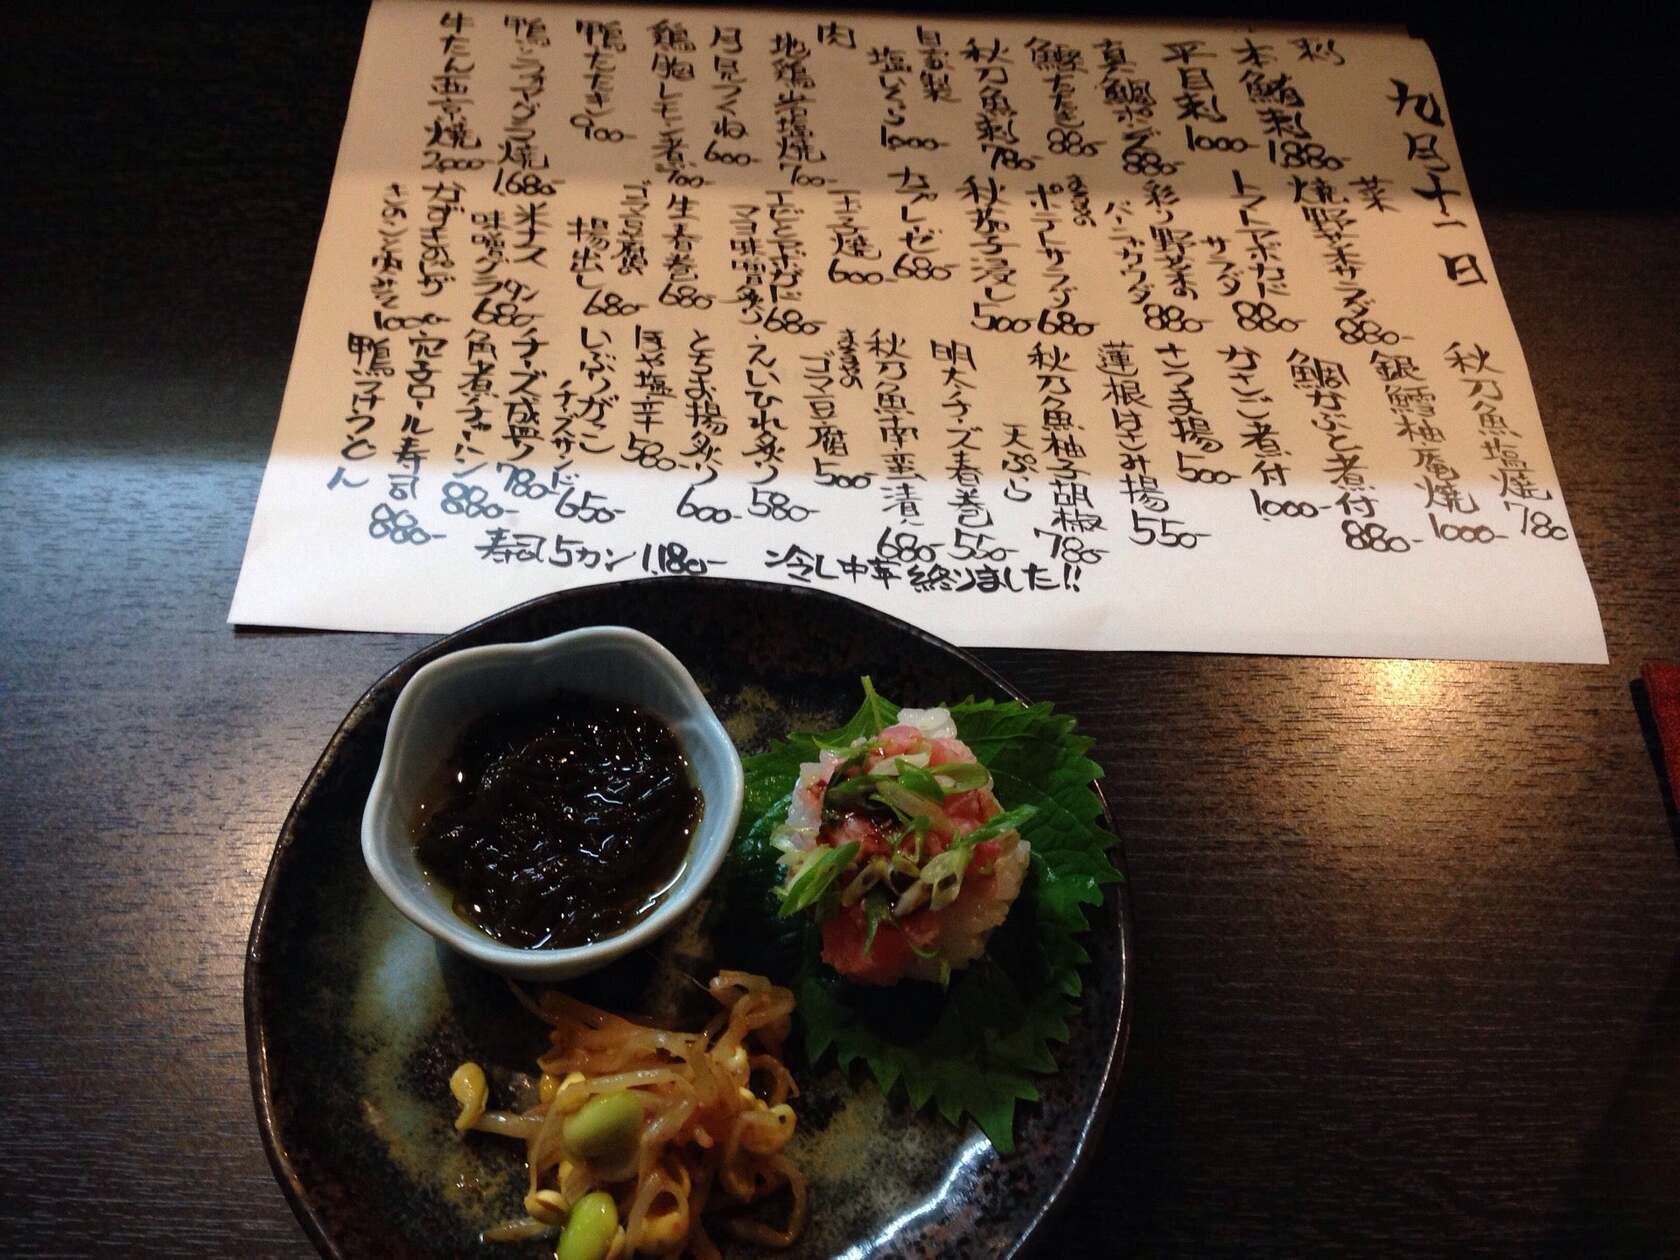 九月十一日
刺
本鮪刺 1,880-
平目刺 1000-
真鯛ポンズ 880-
鰹たたき 880-
秋刀魚刺 780-
自家製
塩いくら 1000-
肉
地鶏岩塩焼 700-
月見つくね 600-
鶏胸レモン煮 700-
鴨たたき 900-
鴨フォアグラ焼 1,680-
牛たん西京焼 2,000-
菜
焼野菜サラダ 880-
トマトアボカド
サラダ 880-
彩り野菜の
バーニャカウダ 880-
まるまの
ポテトサラダ 680-
秋茄子浸し 500-
カプレーゼ 680-
玉子焼 600-
エビとアボガド
マヨ味噌炙り 680-
生春巻 680-
ゴマ豆腐の
揚出し 680-
米ナス
味噌グラタン 680-
かずきのピザ
きのこと 1000-
秋刀魚塩焼 780
銀鱈柚庵焼 1000-
鯛かぶと煮付 880-
かさご煮付 1000-
さつま揚 500-
蓮根はさみ揚 550-
秋刀魚柚子胡椒
天ぷら 780-
明太チーズ春巻 550-
秋刀魚南蛮漬 680-
まるまの
ゴマ豆腐 500-
えいひれ炙り 580-
とちお揚炙り 600-
ほや塩辛 580-
いぶりがっこ
チーズサンド 650-
チーズ盛合 780-
角煮チャーハン 880-
穴子ロール寿司 880-
鴨つけうどん
寿司5カン 1,180-
冷し中華終りました!!